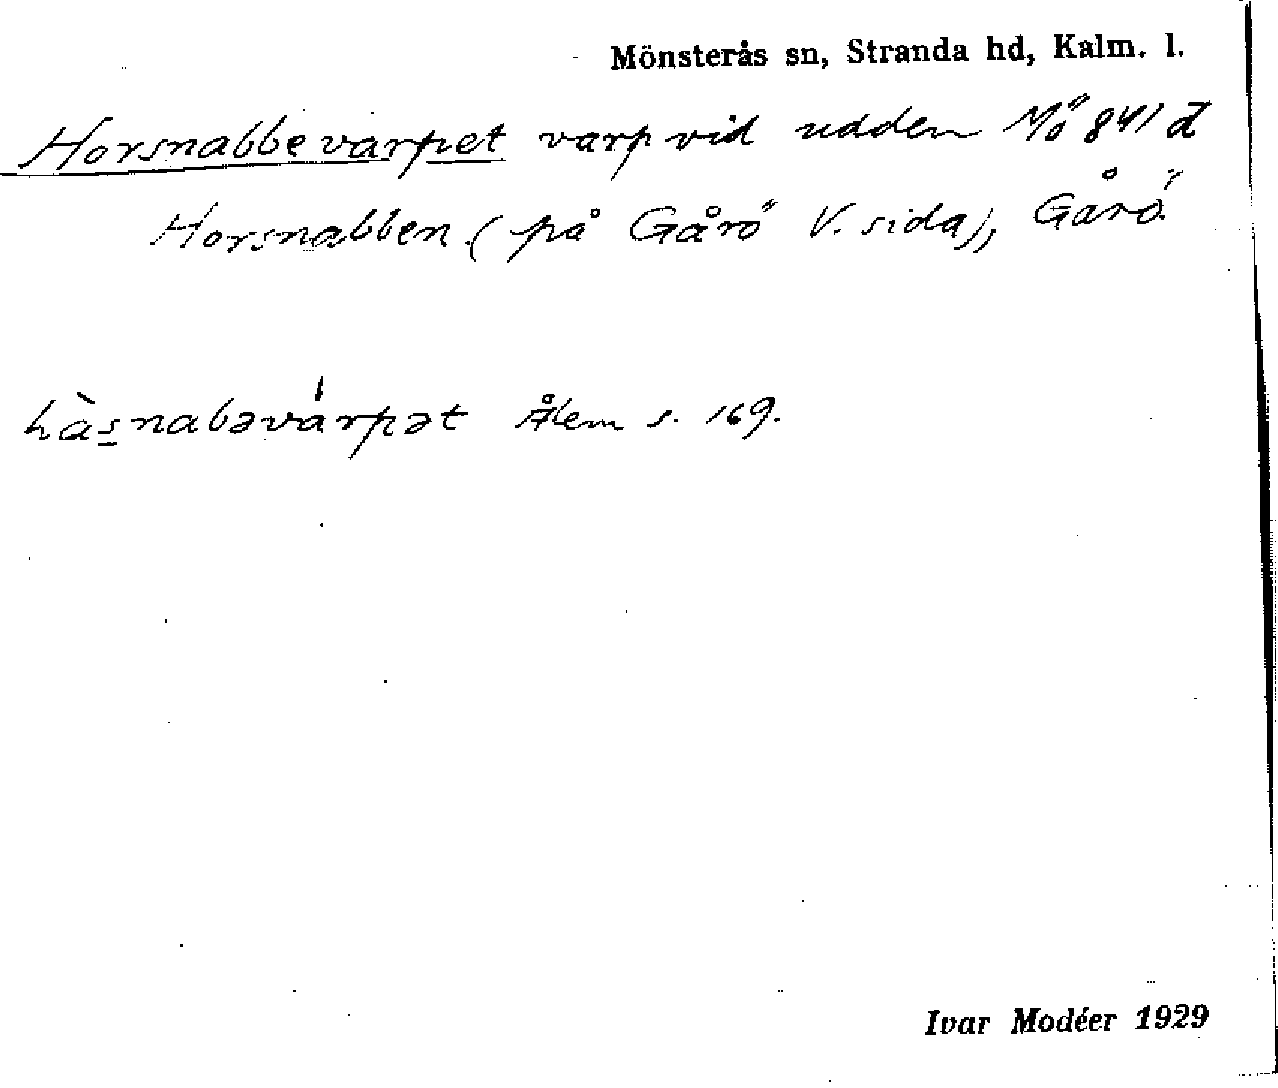 Mönsterås sn, Stranda hd, Kalm. l.
Horsnabbevarpet varp vid udden Mö 841 d
Horsnabben (på Gårö V. sida), Gårö
hàsnabəvárpət Ålem s. 169.
Ivar Modéer 1929